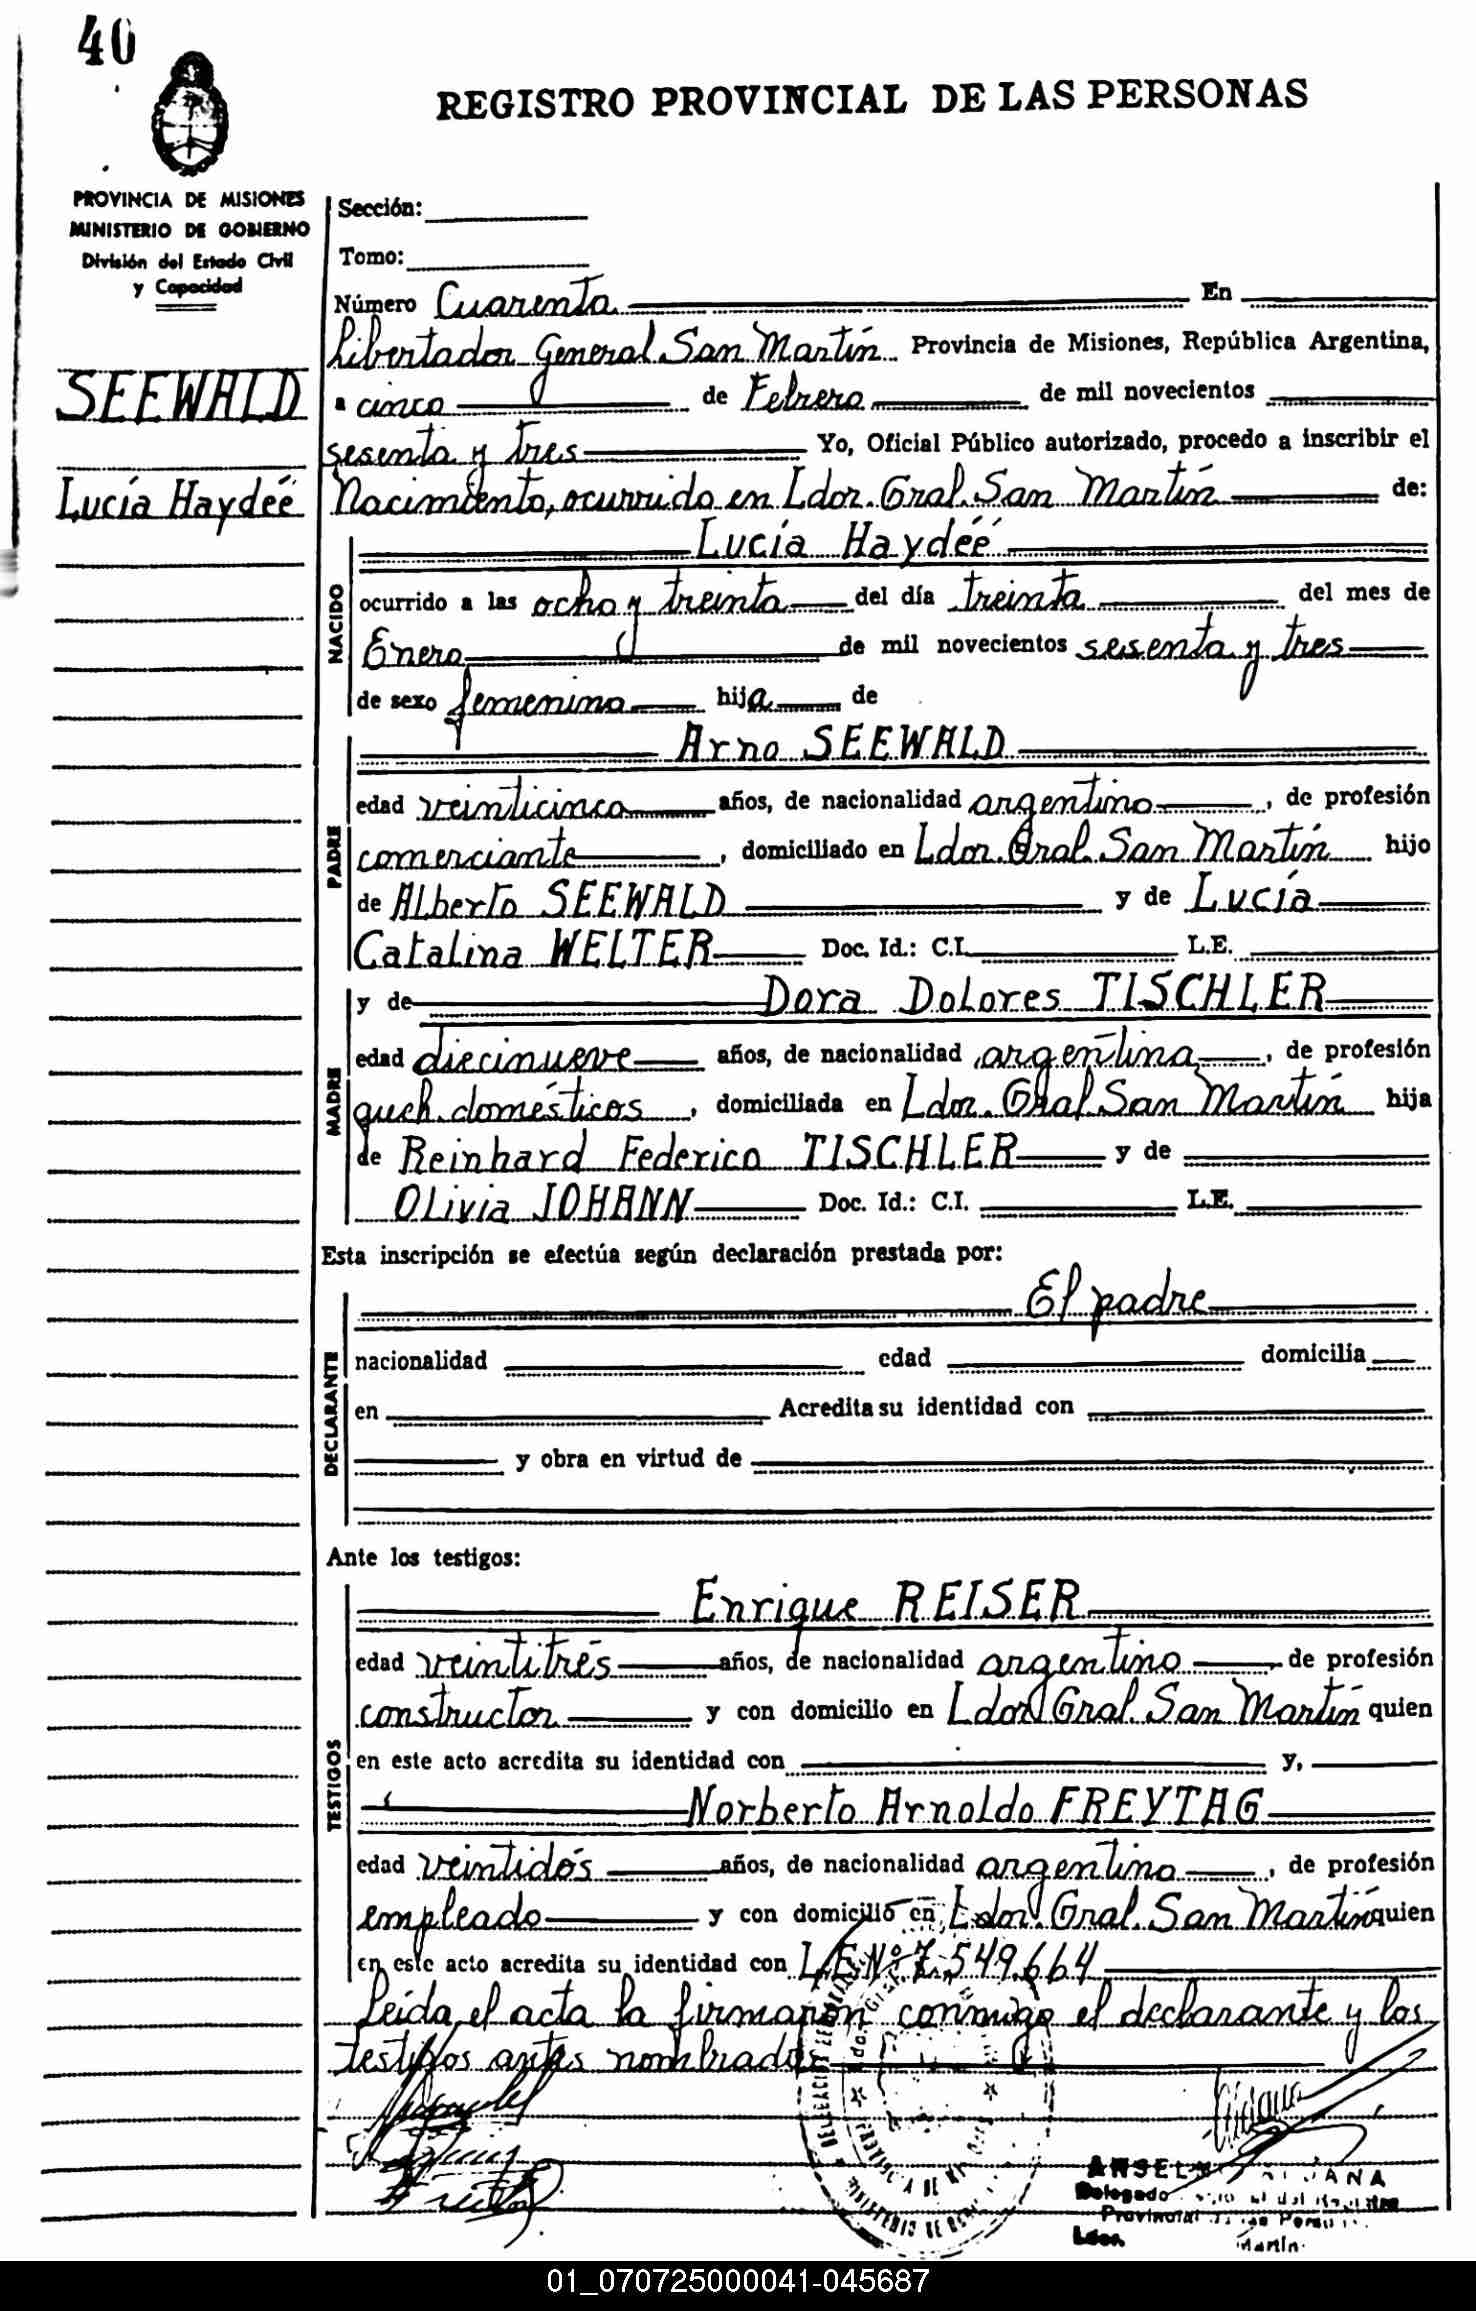 40
REGISTRO PROVINCIAL DE LAS PERSONAS
PROVINCIA DE MISIONES
MINISTERIO DE GOBIERNO
División del Estado Civil
y Capacidad
SEEWALD
Lucía Haydéé
Sección:
Tomo:
Número Cuarenta En
Libertador General San Martín Provincia de Misiones, República Argentina,
a cinco de Febrero de mil novecientos
sesenta y tres Yo, Oficial Público autorizado, procedo a inscribir el
Nacimiento, ocurrido en Ldor. Gral. San Martín de:
NACIDO
Lucía Haydéé
ocurrido a las ocho y treinta del día treinta del mes de
Enero de mil novecientos sesenta y tres
de sexo femenino hija de
PADRE
Arno SEEWALD
edad veinticinco años, de nacionalidad argentino, de profesión
comerciante, domiciliado en Ldor. Gral. San Martín hijo
de Alberto SEEWALD y de Lucía
Catalina WELTER Doc. Id.: C.I. L.E.
MADRE
y de Dora Dolores TISCHLER
edad diecinueve años, de nacionalidad argentina, de profesión
queh. domésticos, domiciliada en Ldor. Gral San Martín hija
de Reinhard Federico TISCHLER y de
Olivia JOHANN Doc. Id.: C.I. L.E.
Esta inscripción se efectúa según declaración prestada por:
DECLARANTE
El padre
nacionalidad edad domicilia
en Acredita su identidad con
y obra en virtud de
Ante los testigos:
TESTIGOS
Enrique REISER
edad veintitrés años, de nacionalidad argentino, de profesión
constructor y con domicilio en Ldor. Gral. San Martín quien
en este acto acredita su identidad con y,
Norberto Arnoldo FREYTAG
edad veintidós años, de nacionalidad argentino, de profesión
empleado y con domicilio en Ldor. Gral. San Martín quien
en este acto acredita su identidad con L.E.Nº 7.549.664
Leída el acta la firmaron conmigo el declarante y los
testigos antes nombrados
Delegado
Provincial
Ldor. Martín
01_070725000041-045687